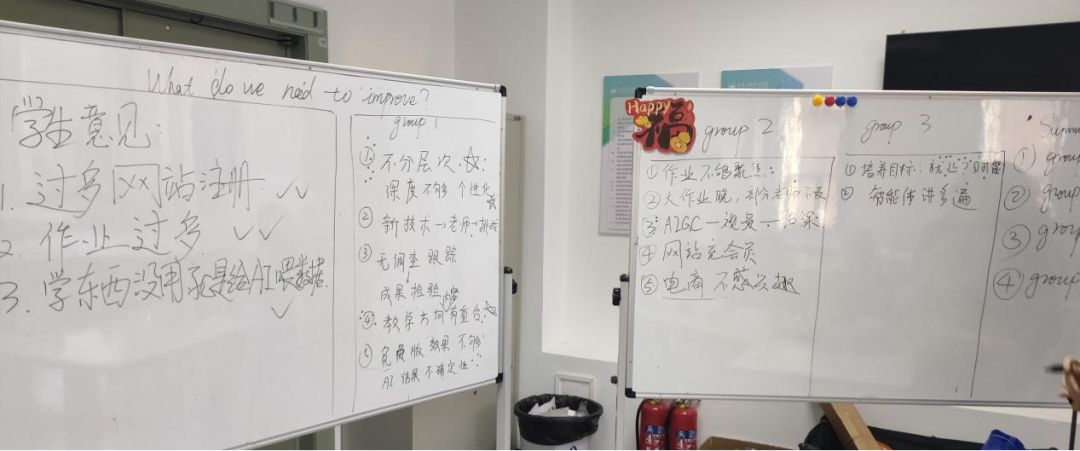 What do we need to improve?
学生意见:
1. 过多网站注册
2. 作业过多
3. 学东西没用就是给AI喂数据.
group 1
① 不分层次
深度不够 个性化
② 新技术→老师→挑战
③ 无调查跟踪
成果检验
④ 教学方向有重合
内容
⑤ 免费版效果不够
AI 结果不确定性
Happy
福
group 2
① 作业不够聚焦
② 大作业晚,部分老师不
③ AIGC—视员
④ 网站充会员
⑤ 电商 不感兴趣
group 3
① 培养目标:就业
② 智能体讲多遍
① group
② group
③ group
④ group